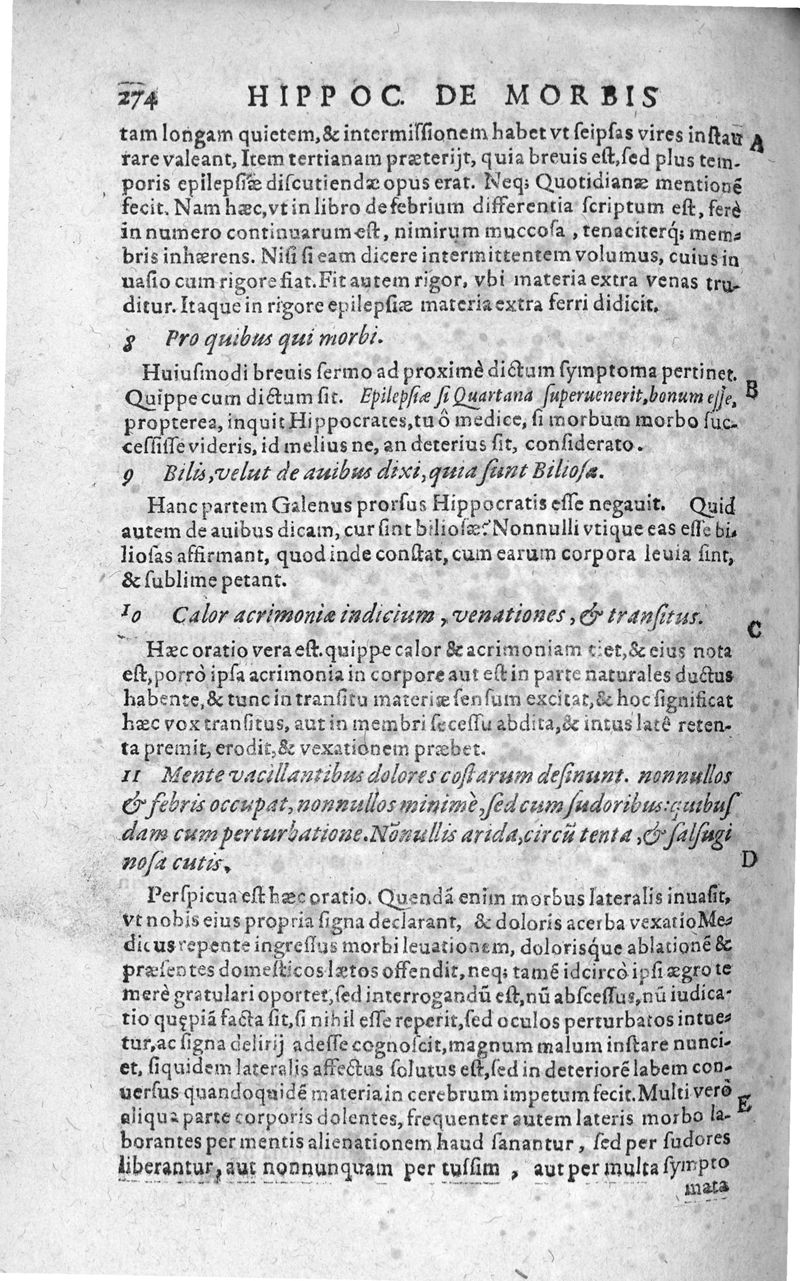 274 HIPPOC. DE MORBIS
tam longam quietem,& intermiſſionem habet vt ſeipſas vires inſtau A
rare valeant, Item tertianam præterijt, quia breuis eſt, ſed plus tem-
poris epilepſiæ diſcutiendæ opus erat. Neq; Quotidianæ mentionē
fecit. Nam hæc, vt in libro de febrium differentia ſcriptum eſt, ferè
in numero continuarum eſt, nimirum muccoſa , tenaciterq́; mem-
bris inhærens. Niſi ſi eam dicere intermittentem volumus, cuius in
uaſio cum rigore fiat. Fit autem rigor, vbi materia extra venas tru-
ditur. Itaque in rigore epilepſiæ materia extra ferri didicit.
8 Pro quibus qui morbi.
Huiuſmodi breuis ſermo ad proximè dictum ſymptoma pertinet.
Quippe cum dictum ſit. Epilepſiæ ſi Quartana ſuperuenerit, bonum eſſe, B
propterea, inquit Hippocrates, tu ô medice, ſi morbum morbo ſuc-
ceſſiſſe videris, id melius ne, an deterius ſit, conſiderato.
9 Bilis, velut de auibus dixi, quia ſunt Bilioſæ.
Hanc partem Galenus prorſus Hippocratis eſſe negauit. Quid
autem de auibus dicam, cur ſint bilioſæ? Nonnulli vtique eas eſſe bi-
lioſas affirmant, quod inde conſtat, cum earum corpora leuia ſint,
& ſublime petant.
10 Calor acrimoniæ indicium , venationes , & tranſitus. C
Hæc oratio vera eſt. quippe calor & acrimoniam ciet, & eius nota
eſt, porrò ipſa acrimonia in corpore aut eſt in parte naturales ductus
habente, & tunc in tranſitu materiæ ſenſum excitat, & hoc ſignificat
hæc vox tranſitus, aut in membri ſeceſſu abdita, & intus latê reten-
ta premit, erodit, & vexationem præbet.
11 Mente vacillantibus dolores coſtarum deſinunt. nonnullos
& febris occupat, nonnullos minimè, ſed cum ſudoribus: quibuſ
dam cum perturbatione. Nōnullis arida, circū tenta , & ſalſugi
noſa cutis. D
Perſpicua eſt hæc oratio. Quendā enim morbus lateralis inuaſit,
vt nobis eius propria ſigna declarant, & doloris acerba vexatio Me-
dicus repente ingreſſus morbi leuationem, doloriſque ablationē &
præſentes domeſticos lætos offendit, neq; tamē idcircò ipſi ægro te
merè gratulari oportet, ſed interrogandū eſt, nū abſceſſus, nū iudica-
tio quępiā facta ſit, ſi nihil eſſe reperit, ſed oculos perturbatos intue-
tur, ac ſigna delirij adeſſe cognoſcit, magnum malum inſtare nunci-
et, ſiquidem lateralis affectus ſolutus eſt, ſed in deteriorē labem con-
uerſus quandoquidē materia in cerebrum impetum fecit. Multi verò
aliqua parte corporis dolentes, frequenter autem lateris morbo la- E
borantes per mentis alienationem haud ſanantur , ſed per ſudores
liberantur, aut nonnunquam per tuſſim , aut per multa ſympto
mata